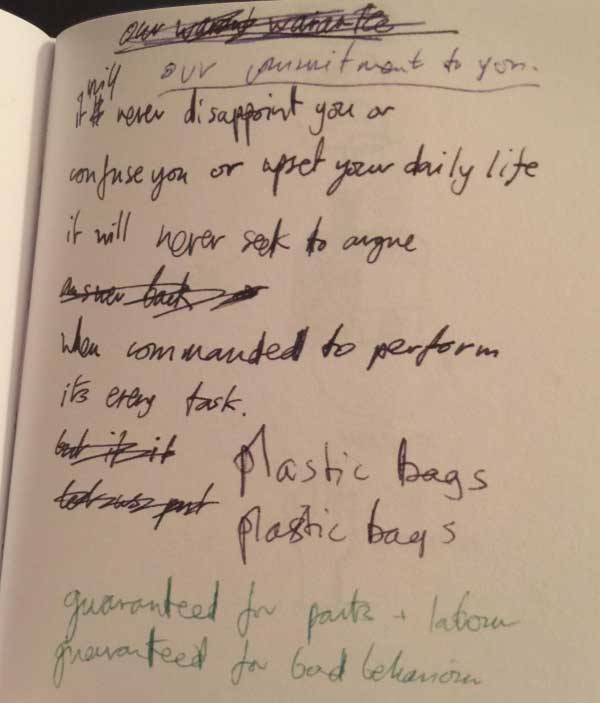 our commitment to you.
it will never disappoint you or
confuse you or upset your daily life
it will never seek to argue
answer back
when commanded to perform
its every task.
but if it
plastic bags
plastic bags
guaranteed for parts + labour
guaranteed for bad behaviour